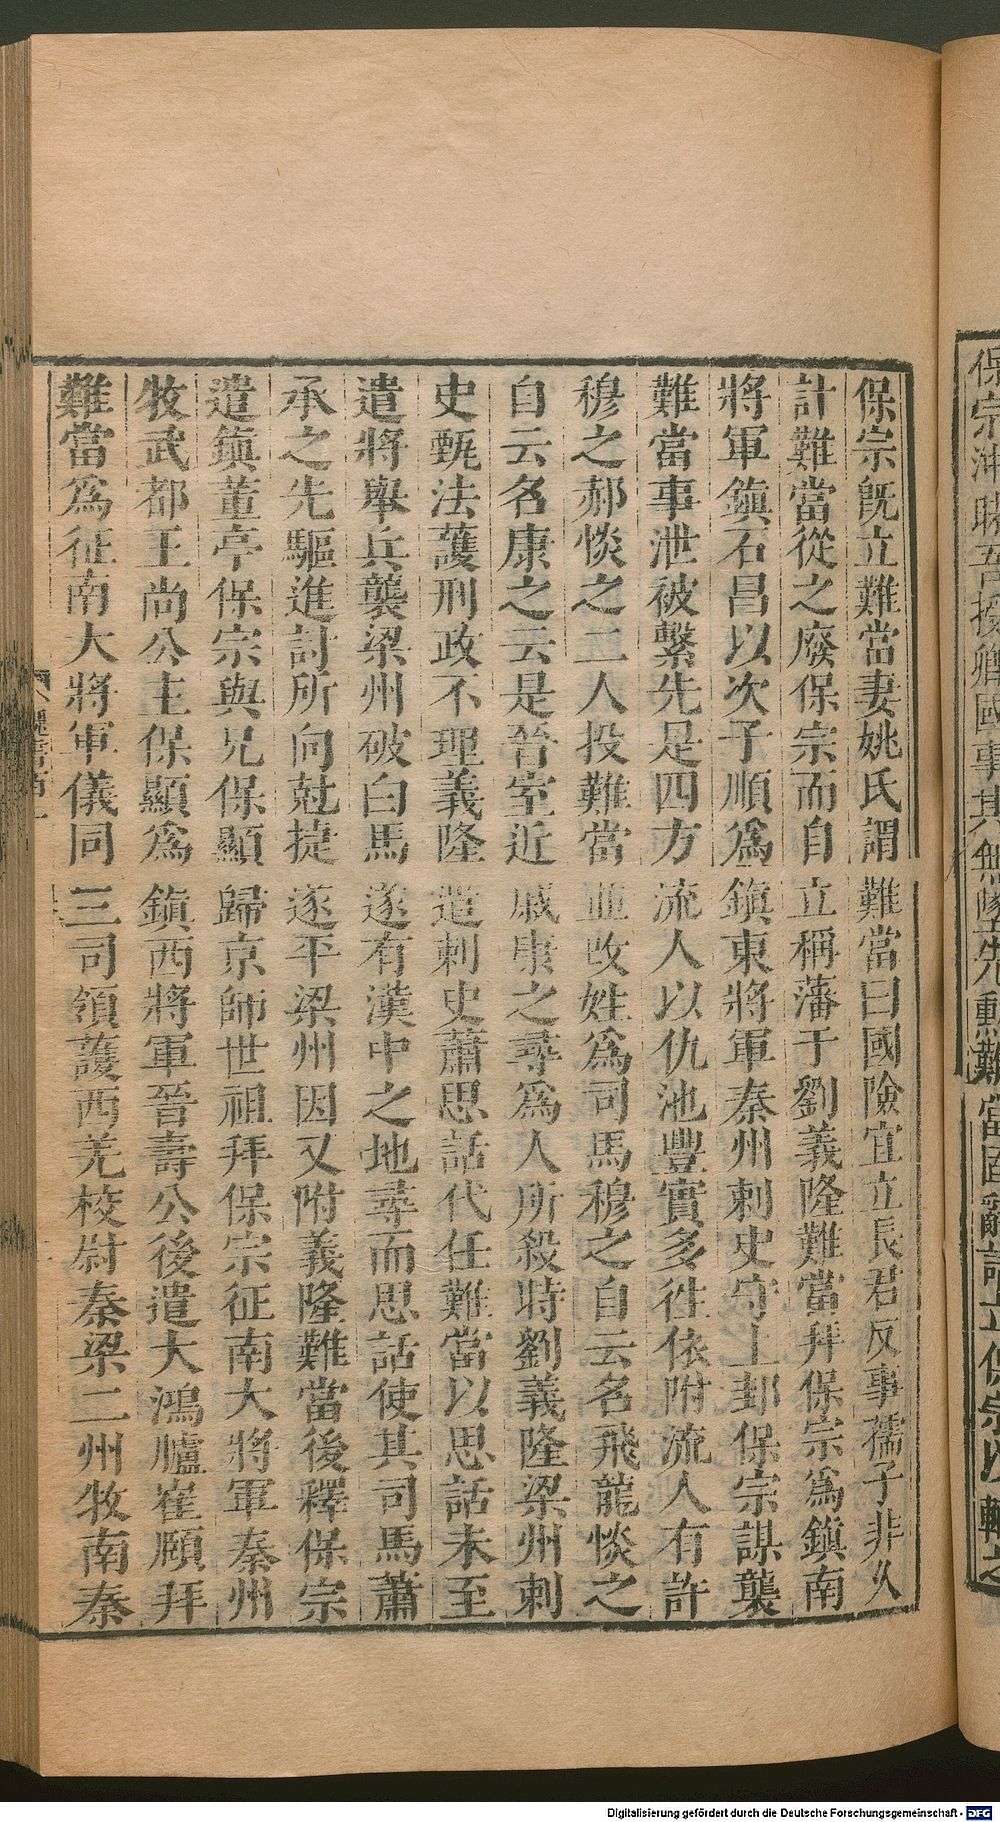 保宗旣立難當妻姚氏謂難當曰國險宜立長君反事孺子非久
計難當從之廢保宗而自立稱藩于劉義隆難當拜保宗爲鎮南
將軍鎮石昌以次子順爲鎮東將軍秦州刺史守上邽保宗謀襲
難當事泄被繫先是四方流人以仇池豐實多往依附流人有許
穆之郝惔之二人投難當並改姓爲司馬穆之自云名飛龍惔之
自云名康之云是晉室近戚康之尋爲人所殺時劉義隆梁州刺
史甄法護刑政不理義隆遣刺史蕭思話代任難當以思話未至
遣將舉兵襲梁州破白馬遂有漢中之地尋而思話使其司馬蕭
承之先驅進討所向尅捷遂平梁州因又附義隆難當後釋保宗
遣鎮董亭保宗與兄保顯歸京師世祖拜保宗征南大將軍秦州
牧武都王尚公主保顯爲鎮西將軍晉壽公後遣大鴻臚崔頤拜
難當爲征南大將軍儀同三司領護西羌校尉秦梁二州牧南秦
Digitalisierung gefördert durch die Deutsche Forschungsgemeinschaft - DFG